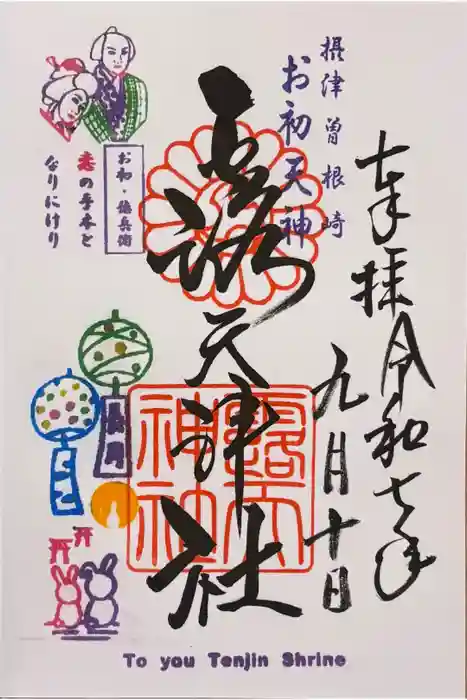 奉拝 令和七年
九月十日
摂津 曽根崎
お初天神
露天神社
露天
神社
お初・徳兵衛
恋の手本と
なりにけり
To you Tenjin Shrine